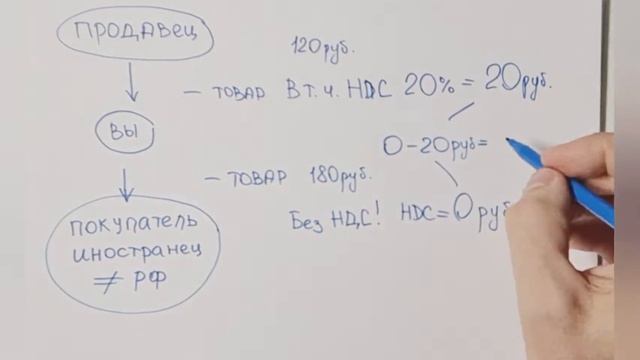 ПРОДАВЕЦ
120руб.
— ТОВАР В т. ч. НДС 20% = 20руб.
ВЫ
0-20руб=
— ТОВАР 180руб.
ПОКУПАТЕЛЬ
ИНОСТРАНЕЦ
≠ РФ
Без НДС! НDС=0руб